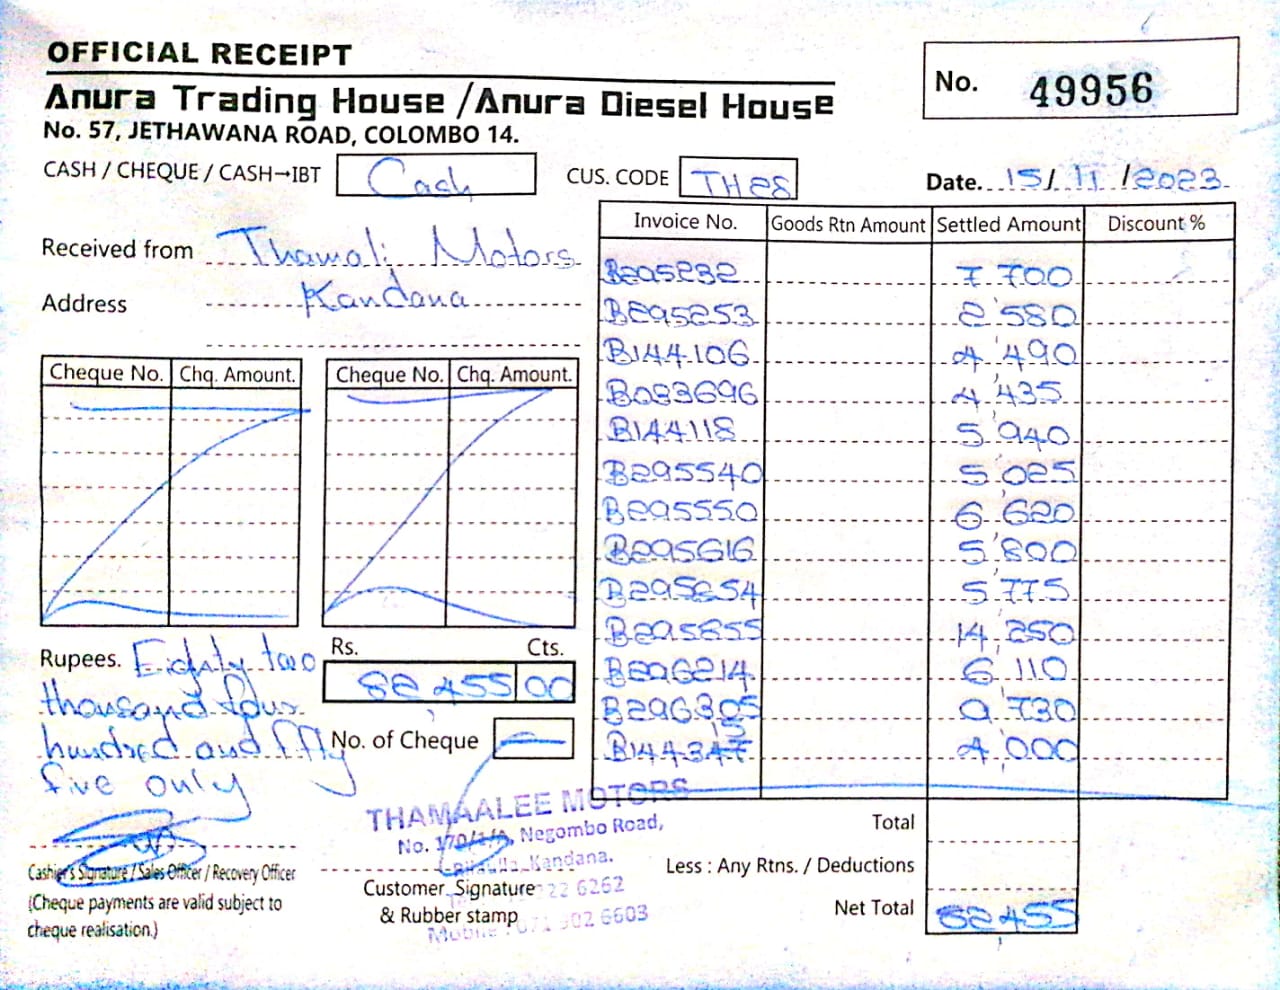 OFFICIAL RECEIPT
Anura Trading House / Anura Diesel House
No. 57, JETHAWANA ROAD, COLOMBO 14.
No. 49956
CASH / CHEQUE / CASH→IBT Cash CUS. CODE TH28 Date. 15/11/2023
Received from Thamali Motors
Address Kandana
Cheque No. Chq. Amount. Cheque No. Chq. Amount.
Invoice No. Goods Rtn Amount Settled Amount Discount %
B295232 7'700
B295253 2'580
B144106 4'490
B083696 4'435
B144118 5'940
B295540 5'025
B295550 6'620
B295616 5'800
5'775
B295855 14'250
B296214 6'110
B296305 9'730
4'000
Rupees. Eighty two
thousand four
hundred and fifty
five only
Rs. Cts.
82,455 00
No. of Cheque
Total
Less : Any Rtns. / Deductions
Net Total 82,455
THAMAALEE MOTORS
No. Negombo Road,
Kandana.
22 6262
Mobile : 071 6603
Cashier's Signature / Sales Officer / Recovery Officer
(Cheque payments are valid subject to
cheque realisation.)
Customer Signature
& Rubber stamp